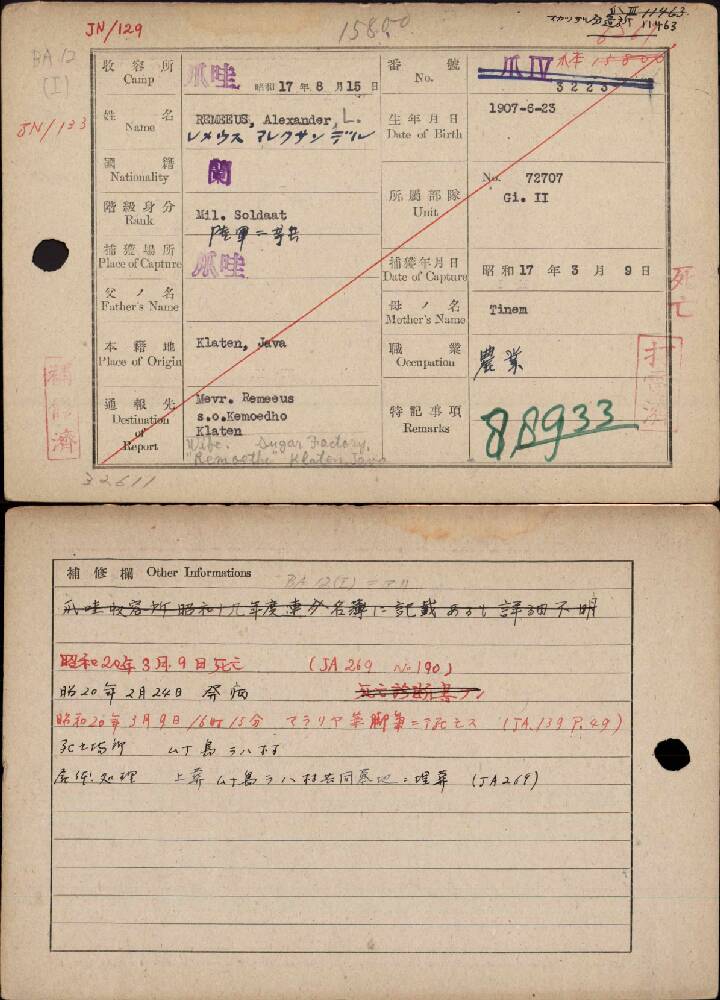 JN/129
15800
11463
11463
BA 12
(I)
JN/133
收容所 Camp 爪哇 昭和17年8月15日
番號 No. 爪 IV 3223
姓名 Name REMEEUS, Alexander, L.
レメウス アレクサンデル
生年月日 Date of Birth 1907-6-23
國籍 Nationality 蘭
階級身分 Rank Mil. Soldaat
陸軍二等兵
所屬部隊 Unit No. 72707
Gi. II
捕獲場所 Place of Capture 爪哇
捕獲年月日 Date of Capture 昭和17年3月9日
死亡
父ノ名 Father's Name
母ノ名 Mother's Name Tinem
本籍地 Place of Origin Klaten, Java
職業 Occupation 農業
通報先 Destination of Report Mevr. Remeeus
s.o.Kemoedho
Klaten
Wife. Sugar Factory,
"Remoetho" Klaten Java
特記事項 Remarks 88933
補修濟
32611
補修欄 Other Informations
BA 12(I)ニアリ
爪哇收容所昭和十九年度連名簿に記載あるも詳細不明
昭和20年3月9日死亡 (JA 269 No 190)
昭20年2月24日 発病 死亡診断書ナシ
昭和20年3月9日16時15分 マラリヤ兼脚氣ニテ死亡ス (JA.139 P.49)
死亡場所 ムナ島ラハ村
屍体処理 土葬 ムナ島ラハ村共同墓地ニ埋葬 (JA269)